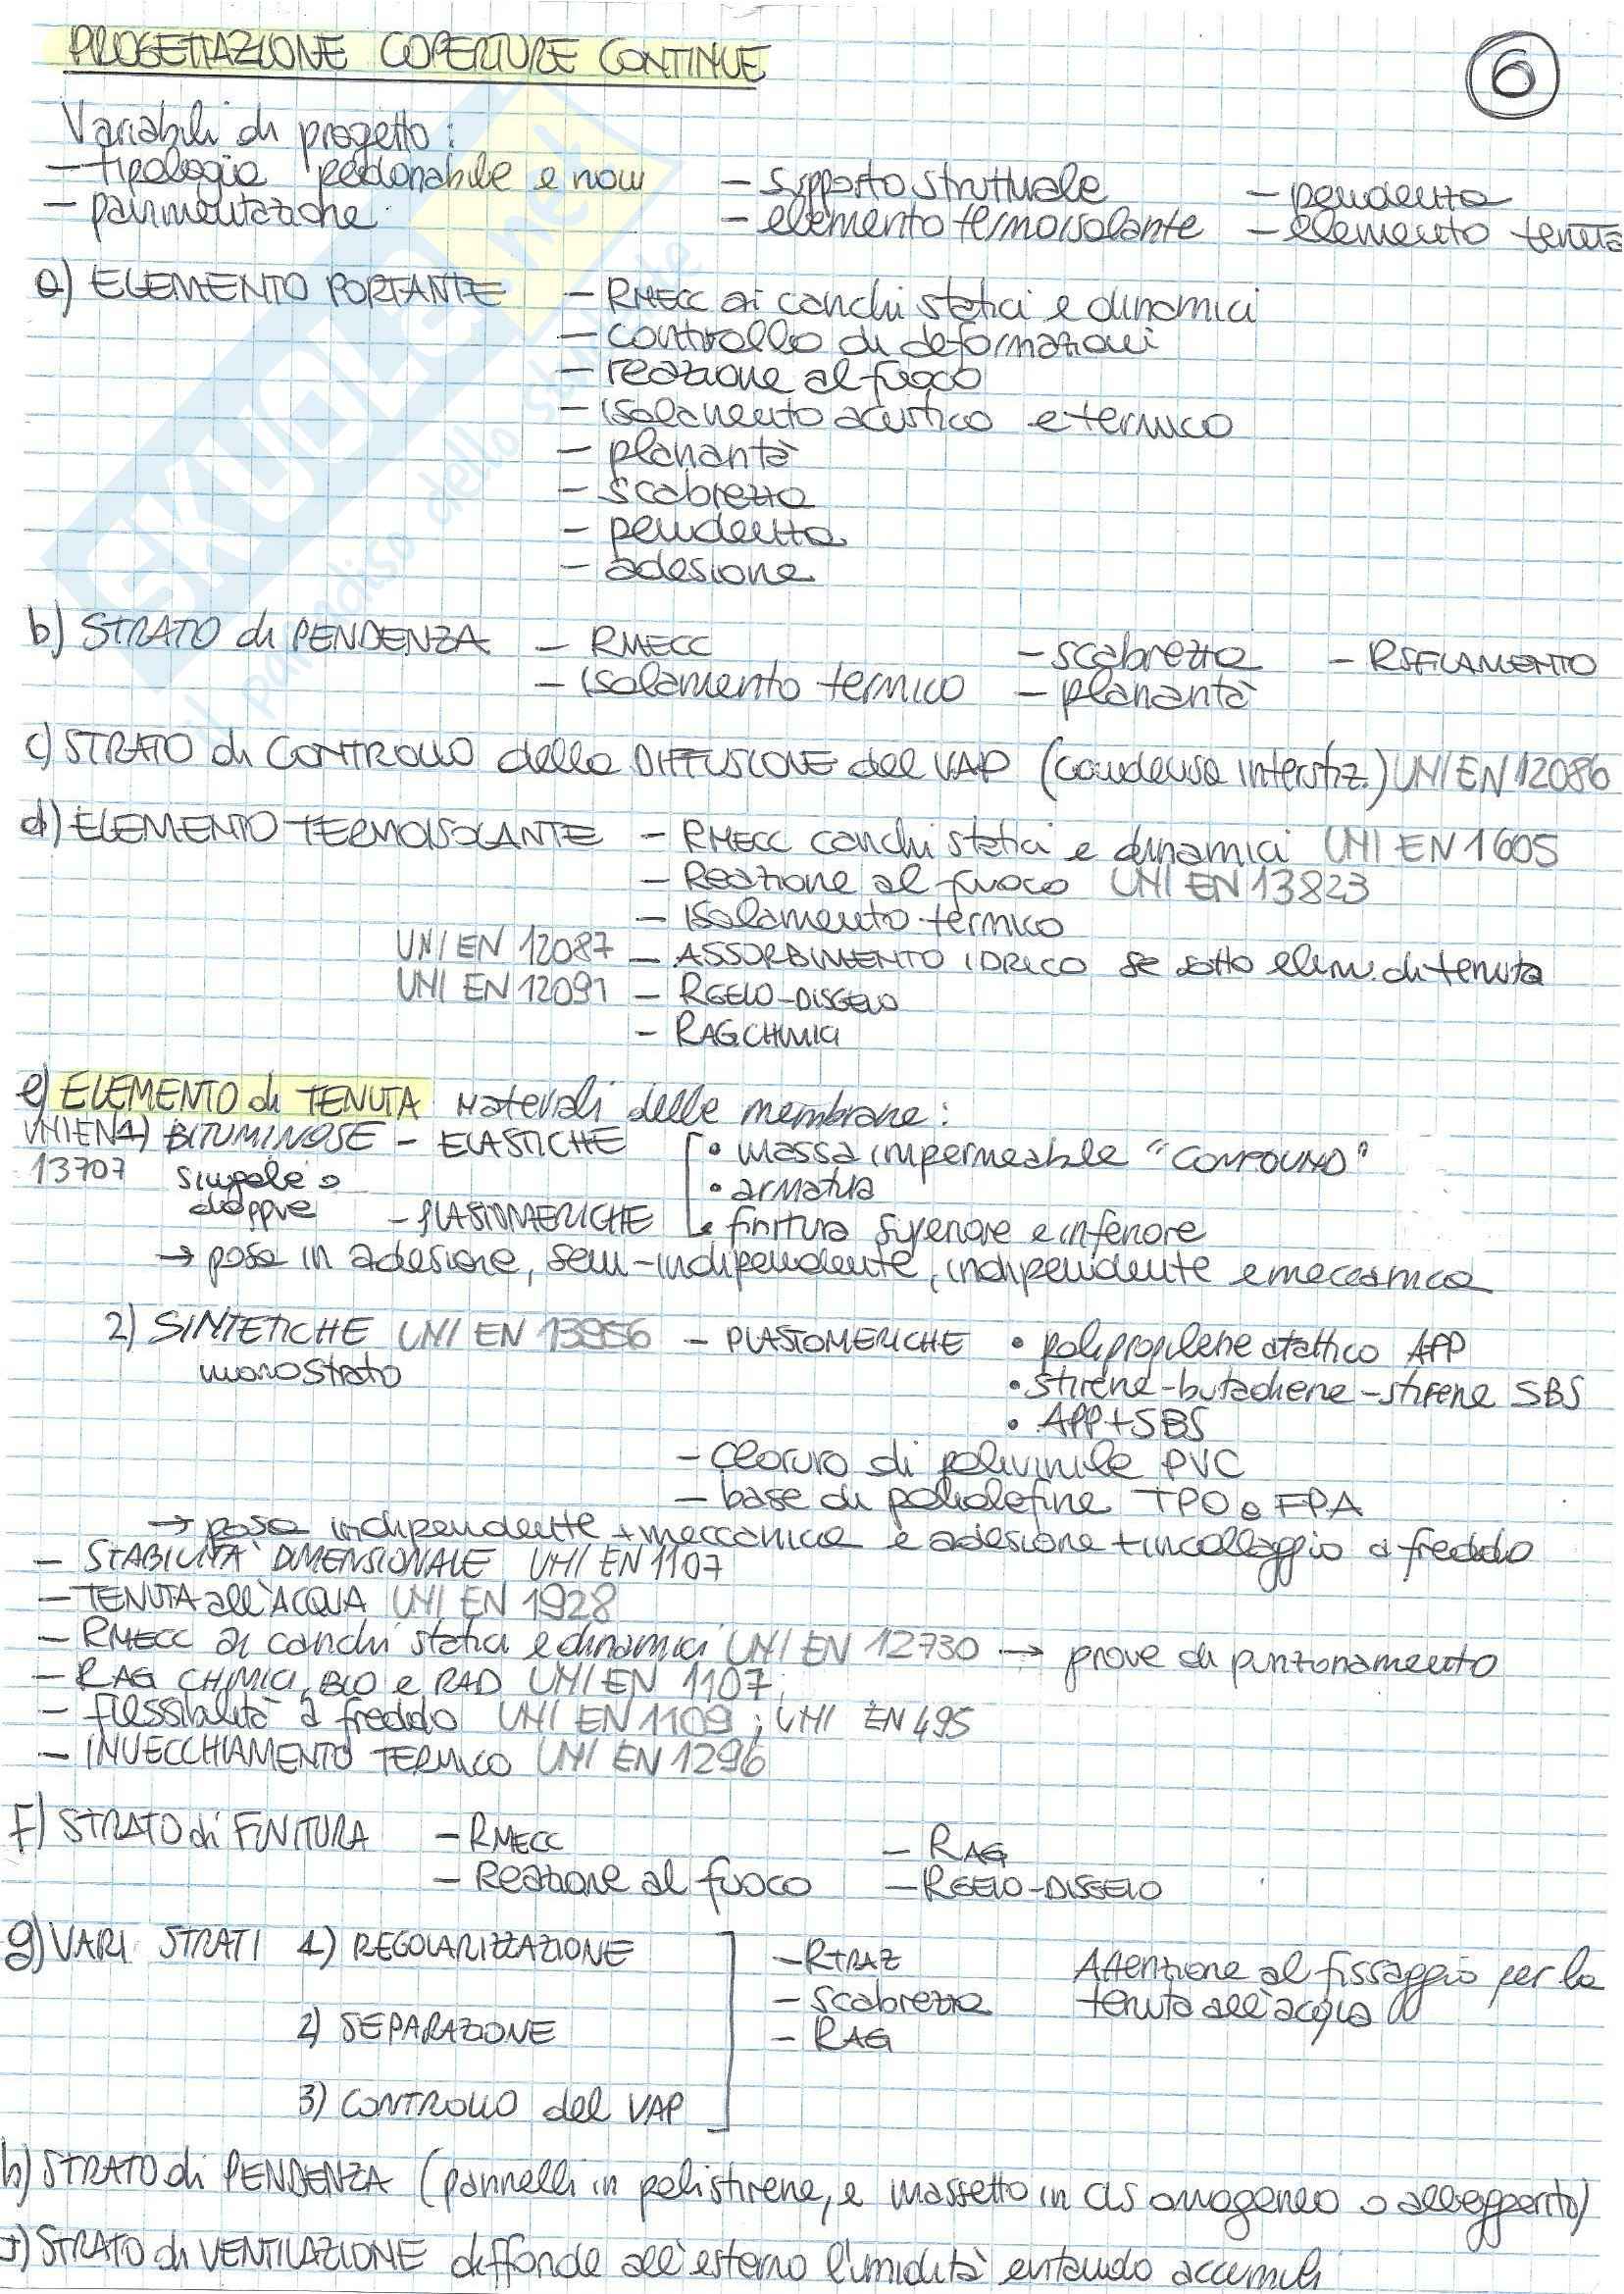 PROGETTAZIONE COPERTURE CONTINUE
6
Variabili di progetto:
- tipologia pedonabile e non - supporto strutturale - pendenza
- pavimentazione - elemento termoisolante - elemento tenuta
a) ELEMENTO PORTANTE - RMECC ai carichi statici e dinamici
- controllo di deformazioni
- reazione al fuoco
- isolamento acustico e termico
- planarità
- scabrezza
- pendenza
- adesione
b) STRATO di PENDENZA - RMECC - scabrezza - RSFILAMENTO
- isolamento termico - planarità
c) STRATO di CONTROLLO della DIFFUSIONE del VAP (condensa interstiz.) UNI EN 12086
d) ELEMENTO TERMOISOLANTE - RMECC carichi statici e dinamici UNI EN 1605
- Reazione al fuoco UNI EN 13823
- Isolamento termico
UNI EN 12087 - ASSORBIMENTO IDRICO se sotto elem. di tenuta
UNI EN 12091 - RGELO-DISGELO
- RAGCHIMICI
e) ELEMENTO di TENUTA Materiali delle membrane:
UNI EN 1) BITUMINOSE - ELASTICHE • massa impermeabile "COMPOUND"
13707 singole o • armatura
doppie - PLASTOMERICHE • finitura superiore e inferiore
→ posa in adesione, semi-indipendente, indipendente e meccanica
2) SINTETICHE UNI EN 13956 - PLASTOMERICHE • polipropilene atattico APP
monostrato • stirene-butadiene-stirene SBS
• APP+SBS
- cloruro di polivinile PVC
- base di poliolefine TPO o FPA
→ posa indipendente + meccanica e adesione + incollaggio a freddo
- STABILITÀ DIMENSIONALE UNI EN 1107
- TENUTA all'ACQUA UNI EN 1928
- RMECC ai carichi statici e dinamici UNI EN 12730 → prove di punzonamento
- RAG CHIMICI, BIO e RAD UNI EN 1107;
- flessibilità a freddo UNI EN 1109; UNI EN 495
- INVECCHIAMENTO TERMICO UNI EN 1296
f) STRATO di FINITURA - RMECC - RAG
- Reazione al fuoco - RGELO-DISGELO
g) VARI STRATI 1) REGOLARIZZAZIONE - RTRAZ Attenzione al fissaggio per la
- scabrezza tenuta all'acqua
2) SEPARAZIONE - RAG
3) CONTROLLO del VAP
h) STRATO di PENDENZA (pannelli in polistirene, e massetto in cls omogeneo o alleggerito)
i) STRATO di VENTILAZIONE diffonde all'esterno l'umidità evitando accumuli
SKUOLA.net
il paradiso dello studente